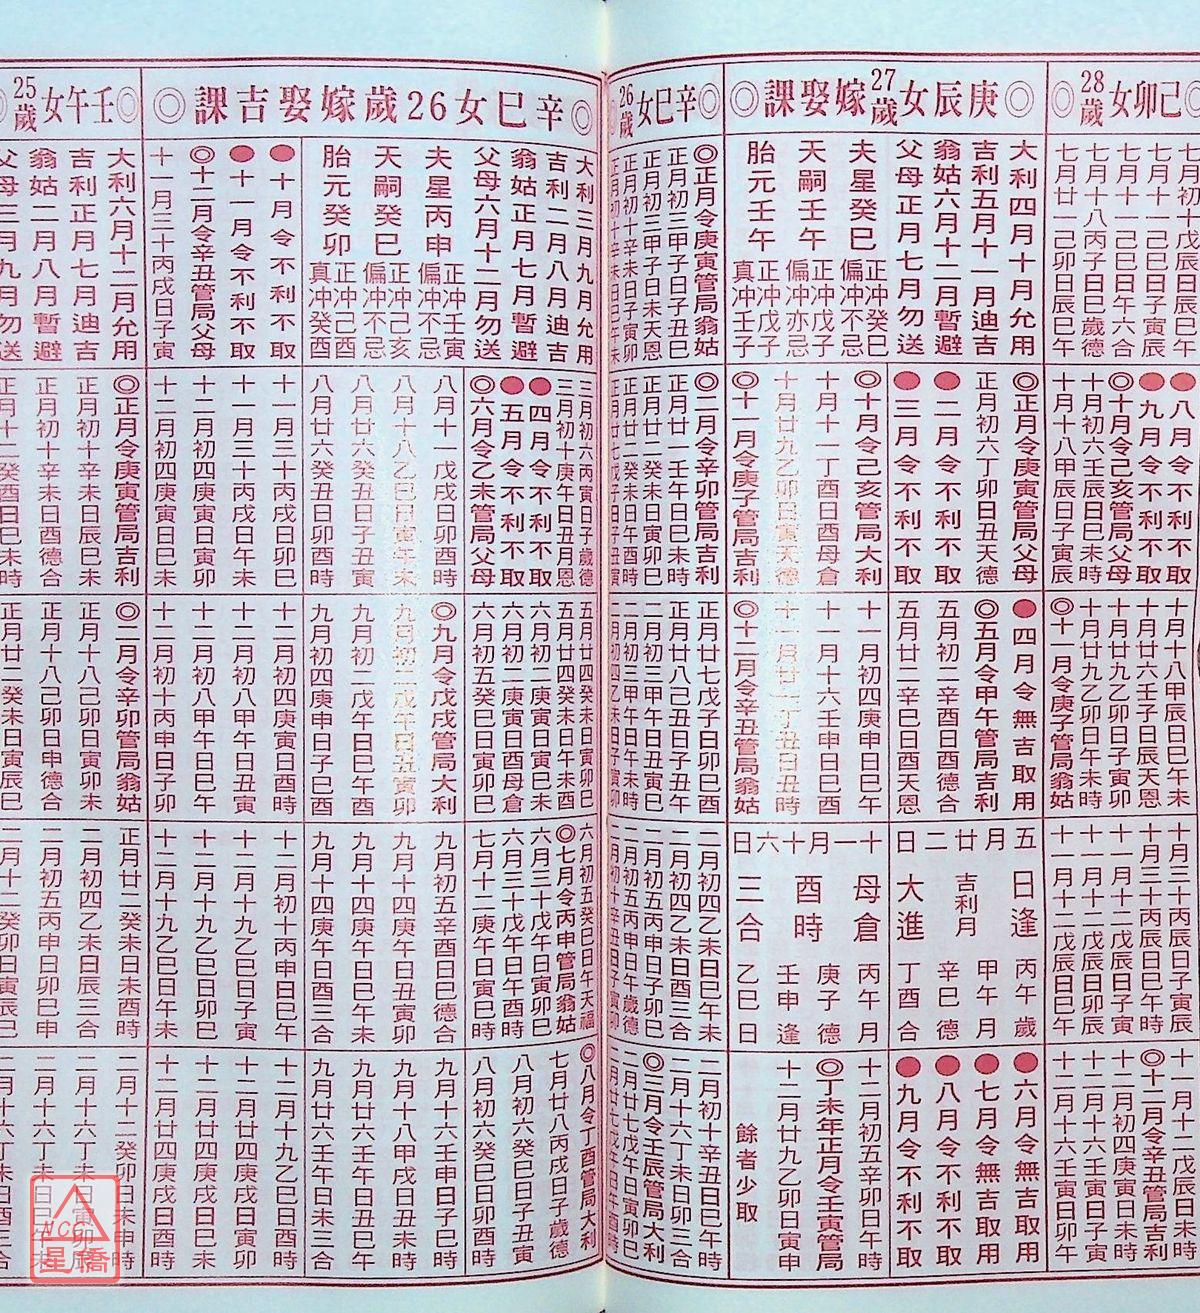 己卯女28歲◎
七月初十戊辰日辰巳
七月十一己巳日寅辰
七月十一己巳日午六合
七月十八丙子日巳歲德
七月廿一己卯日辰巳午
●八月令不利不取
●九月令不利不取
◎十月令己亥管局父母
十月初六壬辰日巳未時
十月十八甲辰日子寅辰
十月十八甲辰日巳午未
十月廿六壬子日辰天恩
十月廿九乙卯日子寅卯
十月廿九乙卯日午未時
◎十一月令庚子管局翁姑
◎庚辰女27歲嫁娶課◎
大利四月十月允用
吉利五月十一月迪吉
翁姑六月十二月暫避
父母正月七月勿送
夫星癸巳 正冲癸巳 偏冲不忌
天嗣壬午 正冲戊子 偏冲亦忌
胎元壬午 正冲戊子 真冲壬子
◎正月令庚寅管局父母
正月初六丁卯日丑天德
●二月令不利不取
●三月令不利不取
●四月令無吉取用
◎五月令甲午管局吉利
五月初二辛酉日酉德合
五月廿二辛巳日酉天恩
五月廿二日
日逢 吉利月 大進
丙午歲 甲午月 辛巳德 丁酉合
●六月令無吉取用
●七月令無吉取用
●八月令不利不取
●九月令不利不取
◎十月令己亥管局大利
十月十一丁酉日酉母倉
十月廿九乙卯日寅天德
◎十一月令庚子管局吉利
十一月初四庚申日巳午
十一月十六壬申日巳酉
十一月廿一丁丑日丑時
◎十二月令辛丑管局翁姑
十一月十六日
母倉 酉時 三合
丙午月 庚子德 壬申逢 乙巳日
十二月初五辛卯日卯時
◎丁未年正月令壬寅管局
十二月廿九乙卯日寅申
餘者少取
◎辛巳女26歲◎
◎正月令庚寅管局翁姑
正月初三甲子日子丑巳
正月初三甲子日未天恩
正月初十辛未日子寅卯
◎二月令辛卯管局吉利
正月廿一壬午日巳未時
正月廿二癸未日寅卯巳
正月廿七戊子日卯巳時
正月廿八己丑日丑卯時
二月初三甲午日丑寅卯
二月初三甲午日午未時
二月初四乙未日巳午未
二月初四乙未日酉三合
二月初五丙申日子卯巳
二月初五丙申日午歲德
二月初十辛丑日巳巳時
二月十六丁未日巳三合
◎三月令壬辰管局大利
◎辛巳女26歲嫁娶吉課◎
大利三月九月允用
吉利二月八月迪吉
翁姑正月七月暫避
父母六月十二月勿送
夫星丙申 正冲壬寅 偏冲不忌
天嗣癸巳 正冲己亥 偏冲不忌
胎元癸卯 正冲己酉 真冲癸酉
●十月令不利不取
●十一月令不利不取
◎十二月令辛丑管局父母
十一月三十丙戌日子寅
三月初六丙寅日子歲德
三月初十庚午日丑月恩
●四月令不利不取
●五月令不利不取
◎六月令乙未管局父母
八月十一戊戌日卯酉時
八月十八乙巳日寅午未
八月廿六癸丑日子丑寅
八月廿六癸丑日卯酉時
十一月三十丙戌日卯巳
十一月三十丙戌日午未
十二月初四庚寅日寅卯
十二月初四庚寅日巳未
五月廿四癸未日寅卯巳
五月廿四癸未日午未酉
六月初二庚寅日寅巳未
六月初二庚寅日酉母倉
六月初五癸巳日寅卯巳
◎九月令戊戌管局大利
九月初二戊午日丑寅卯
九月初二戊午日巳午酉
九月初四庚申日子巳酉
十二月初四庚寅日酉時
十二月初八甲午日丑寅
十二月初八甲午日巳午
十二月初十丙申日子卯
六月初五癸巳日午天福
◎七月令丙申管局翁姑
六月三十戊午日寅卯巳
六月三十戊午日午酉時
七月十二庚午日寅巳時
九月初五辛酉日巳德合
九月十四庚午日丑寅卯
九月十四庚午日巳午未
九月十四庚午日酉三合
十二月初十丙申日巳午
十二月十九乙巳日子寅
十二月十九乙巳日卯巳
十二月十九乙巳日午未
◎八月令丁酉管局大利
七月廿八丙戌日子歲德
八月初六癸巳日子丑寅
八月初六癸巳日卯酉時
九月十六壬申日子巳午
九月十八甲戌日丑未時
九月廿六壬午日丑巳午
九月廿六壬午日未三合
十二月十九乙巳日酉時
十二月廿四庚戌日寅卯
十二月廿四庚戌日巳未
◎壬午女25歲◎
大利六月十二月允用
吉利正月七月迪吉
翁姑二月八月暫避
父母三月九月勿送
◎正月令庚寅管局吉利
正月初十辛未日辰巳未
正月初十辛未日酉德合
正月十二癸酉日巳未時
◎二月令辛卯管局翁姑
正月十八己卯日寅卯未
正月十八己卯日申德合
正月廿二癸未日寅辰巳
正月廿二癸未日未酉時
二月初四乙未日辰三合
二月初五丙申日卯巳申
二月十二癸卯日寅辰巳
二月十二癸卯日未申時
星僑
NCC